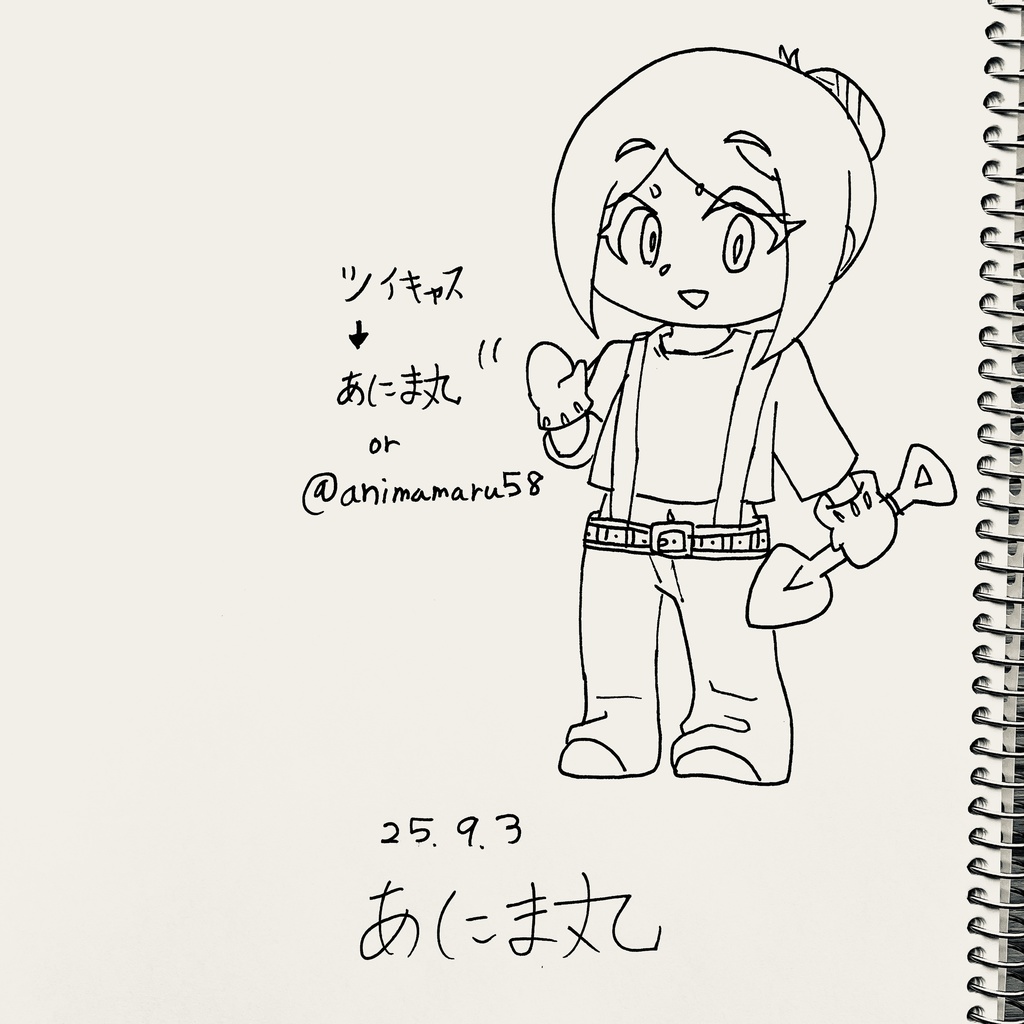 ツイキャス
↓
あにま丸
or
@animamaru58
25.9.3
あにま丸